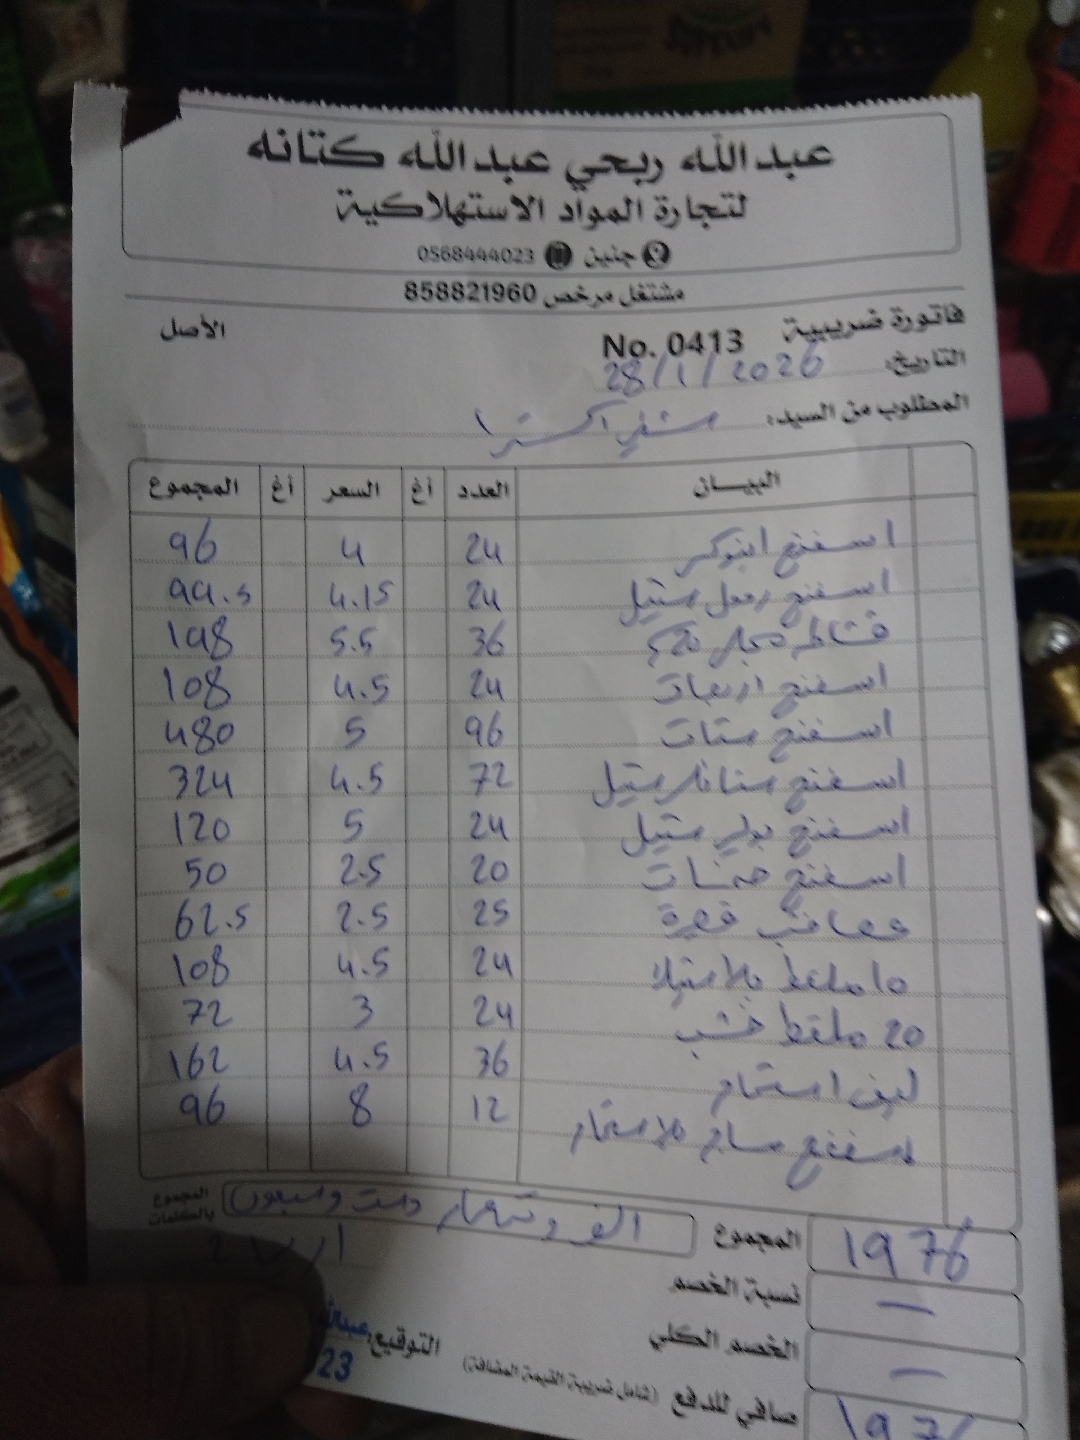 عبد الله ربحي عبد الله كتانه
لتجارة المواد الاستهلاكية
جنين 0568444023
مشتغل مرخص 858821960
فاتورة ضريبية No. 0413 الأصل
التاريخ: 28/1/2026
المطلوب من السيد: اكسترا
البيان العدد أغ السعر أغ المجموع
اسفنج 24 4 96
اسفنج ستيل 24 4.15 99.5
36 5.5 198
اسفنج اربعات 24 4.5 108
اسفنج ستات 96 5 480
اسفنج ستانلر ستيل 72 4.5 324
اسفنج بولي ستيل 24 5 120
اسفنج 20 2.5 50
25 2.5 62.5
10 ملقط بلاستيك 24 4.5 108
20 ملقط خشب 24 3 72
ليف استحمام 36 4.5 162
اسفنج للاستحمام 12 8 96
المجموع بالكلمات الف وتسعمائة وست وسبعون
المجموع 1976
نسبة الخصم —
الخصم الكلي —
صافي للدفع (شامل ضريبة القيمة المضافة) 1976
التوقيع:
23